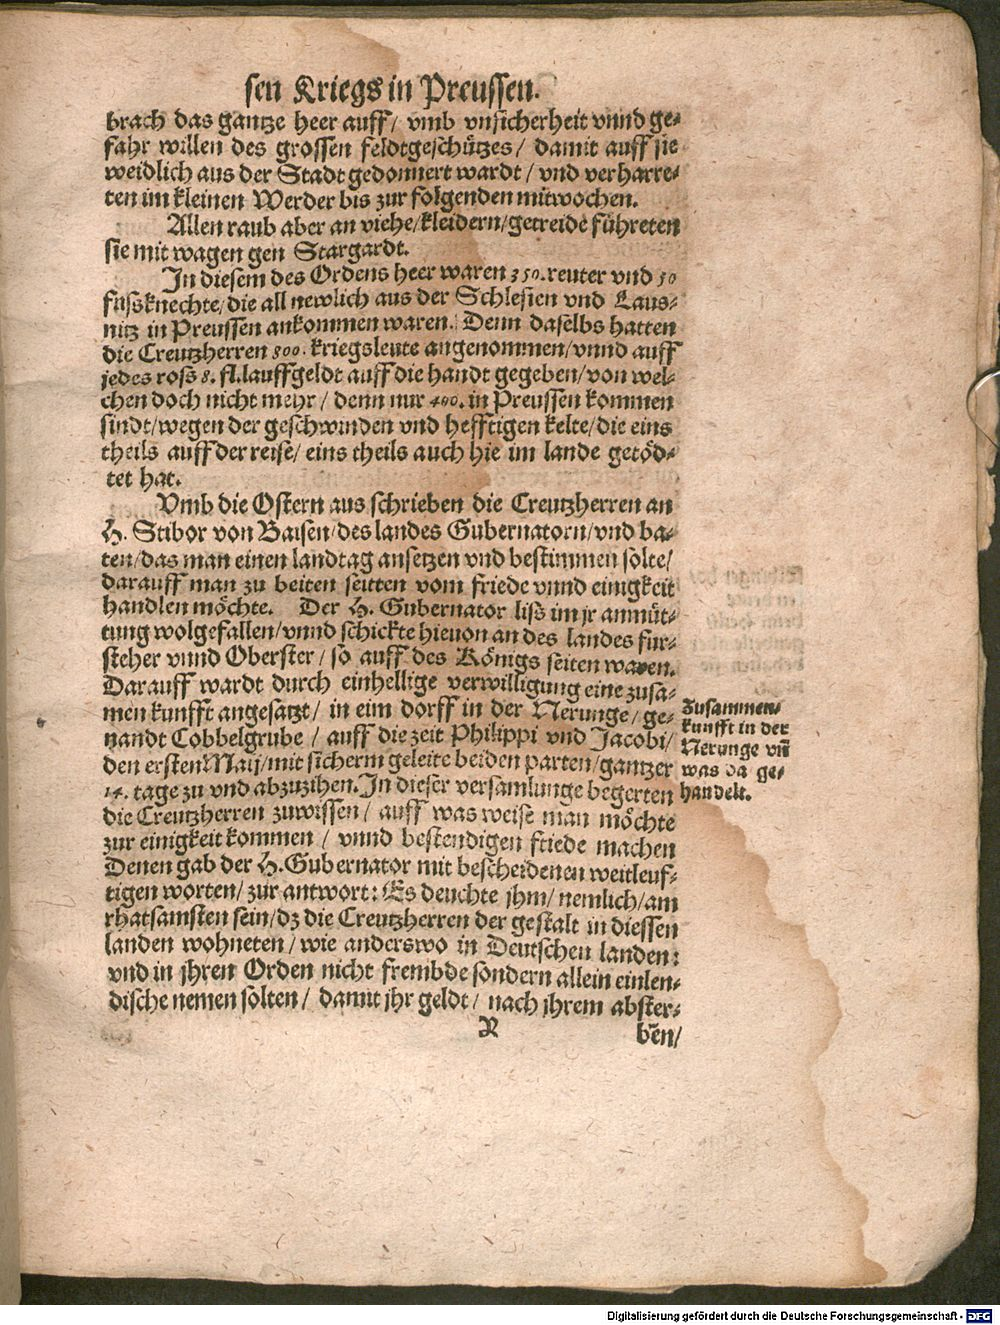 sen Kriegs in Preussen.
brach das gantze heer auff/ vmb vnsicherheit vnnd ge-
fahr willen des grossen feldtgeschützes/ damit auff sie
weidlich aus der Stadt gedonnert wardt/ vnd verharre-
ten im kleinen Werder bis zur folgenden mitwochen.
Allen raub aber an viehe/kleidern/getreide führeten
sie mit wagen gen Stargardt.
In diesem des Ordens heer waren 350.reuter vnd 50
fusßknechte/die all newlich aus der Schlesien vnd Laus-
nitz in Preussen ankommen waren. Denn daselbs hatten
die Creutzherren 800. kriegsleute angenommen/vnnd auff
jedes roß 8. fl.lauffgeldt auff die handt gegeben/von wel-
chen doch nicht mehr/ denn nur 400. in Preussen kommen
sindt/wegen der geschwinden vnd hefftigen kelte/die eins
theils auff der reise/ eins theils auch hie im lande getöd-
tet hat.
Vmb die Ostern aus schrieben die Creutzherren an
H. Stibor von Baisen/des landes Gubernatorn/vnd ba-
ten/das man einen landtag ansetzen vnd bestimmen solte/
darauff man zu beiten seitten vom friede vnnd einigkeit
handlen möchte. Der H. Gubernator liß im jr anmüt-
tung wolgefallen/vnnd schickte hieuon an des landes für-
steher vnnd Oberster/ so auff des Königs seiten waren.
Darauff wardt durch einhellige verwilligung eine zusa-
men kunfft angesatzt/ in eim dorff in der Nerunge/ ge-
nandt Cobbelgrube/ auff die zeit Philippi vnd Jacobi/
den ersten Maij/mit sicherm geleite beiden parten/gantzer
14. tage zu vnd abzuzihen.In dieser versamlunge begerten
die Creutzherren zuwissen/ auff was weise man möchte
zur einigkeit kommen/ vnnd bestendigen friede machen
Denen gab der H.Gubernator mit bescheidenen weitleuf-
tigen worten/ zur antwort: Es deuchte jhm/ nemlich/am
rhatsamsten sein/dz die Creutzherren der gestalt in diessen
landen wohneten/ wie anderswo in Deutschen landen:
vnd in jhren Orden nicht frembde sondern allein einlen-
dische nemen solten/ damit jhr geldt/ nach jhrem abster-
R ben/
Zusammen-
kunfft in der
Nerunge vñ
was da ge-
handelt.
Digitalisierung gefördert durch die Deutsche Forschungsgemeinschaft - DFG